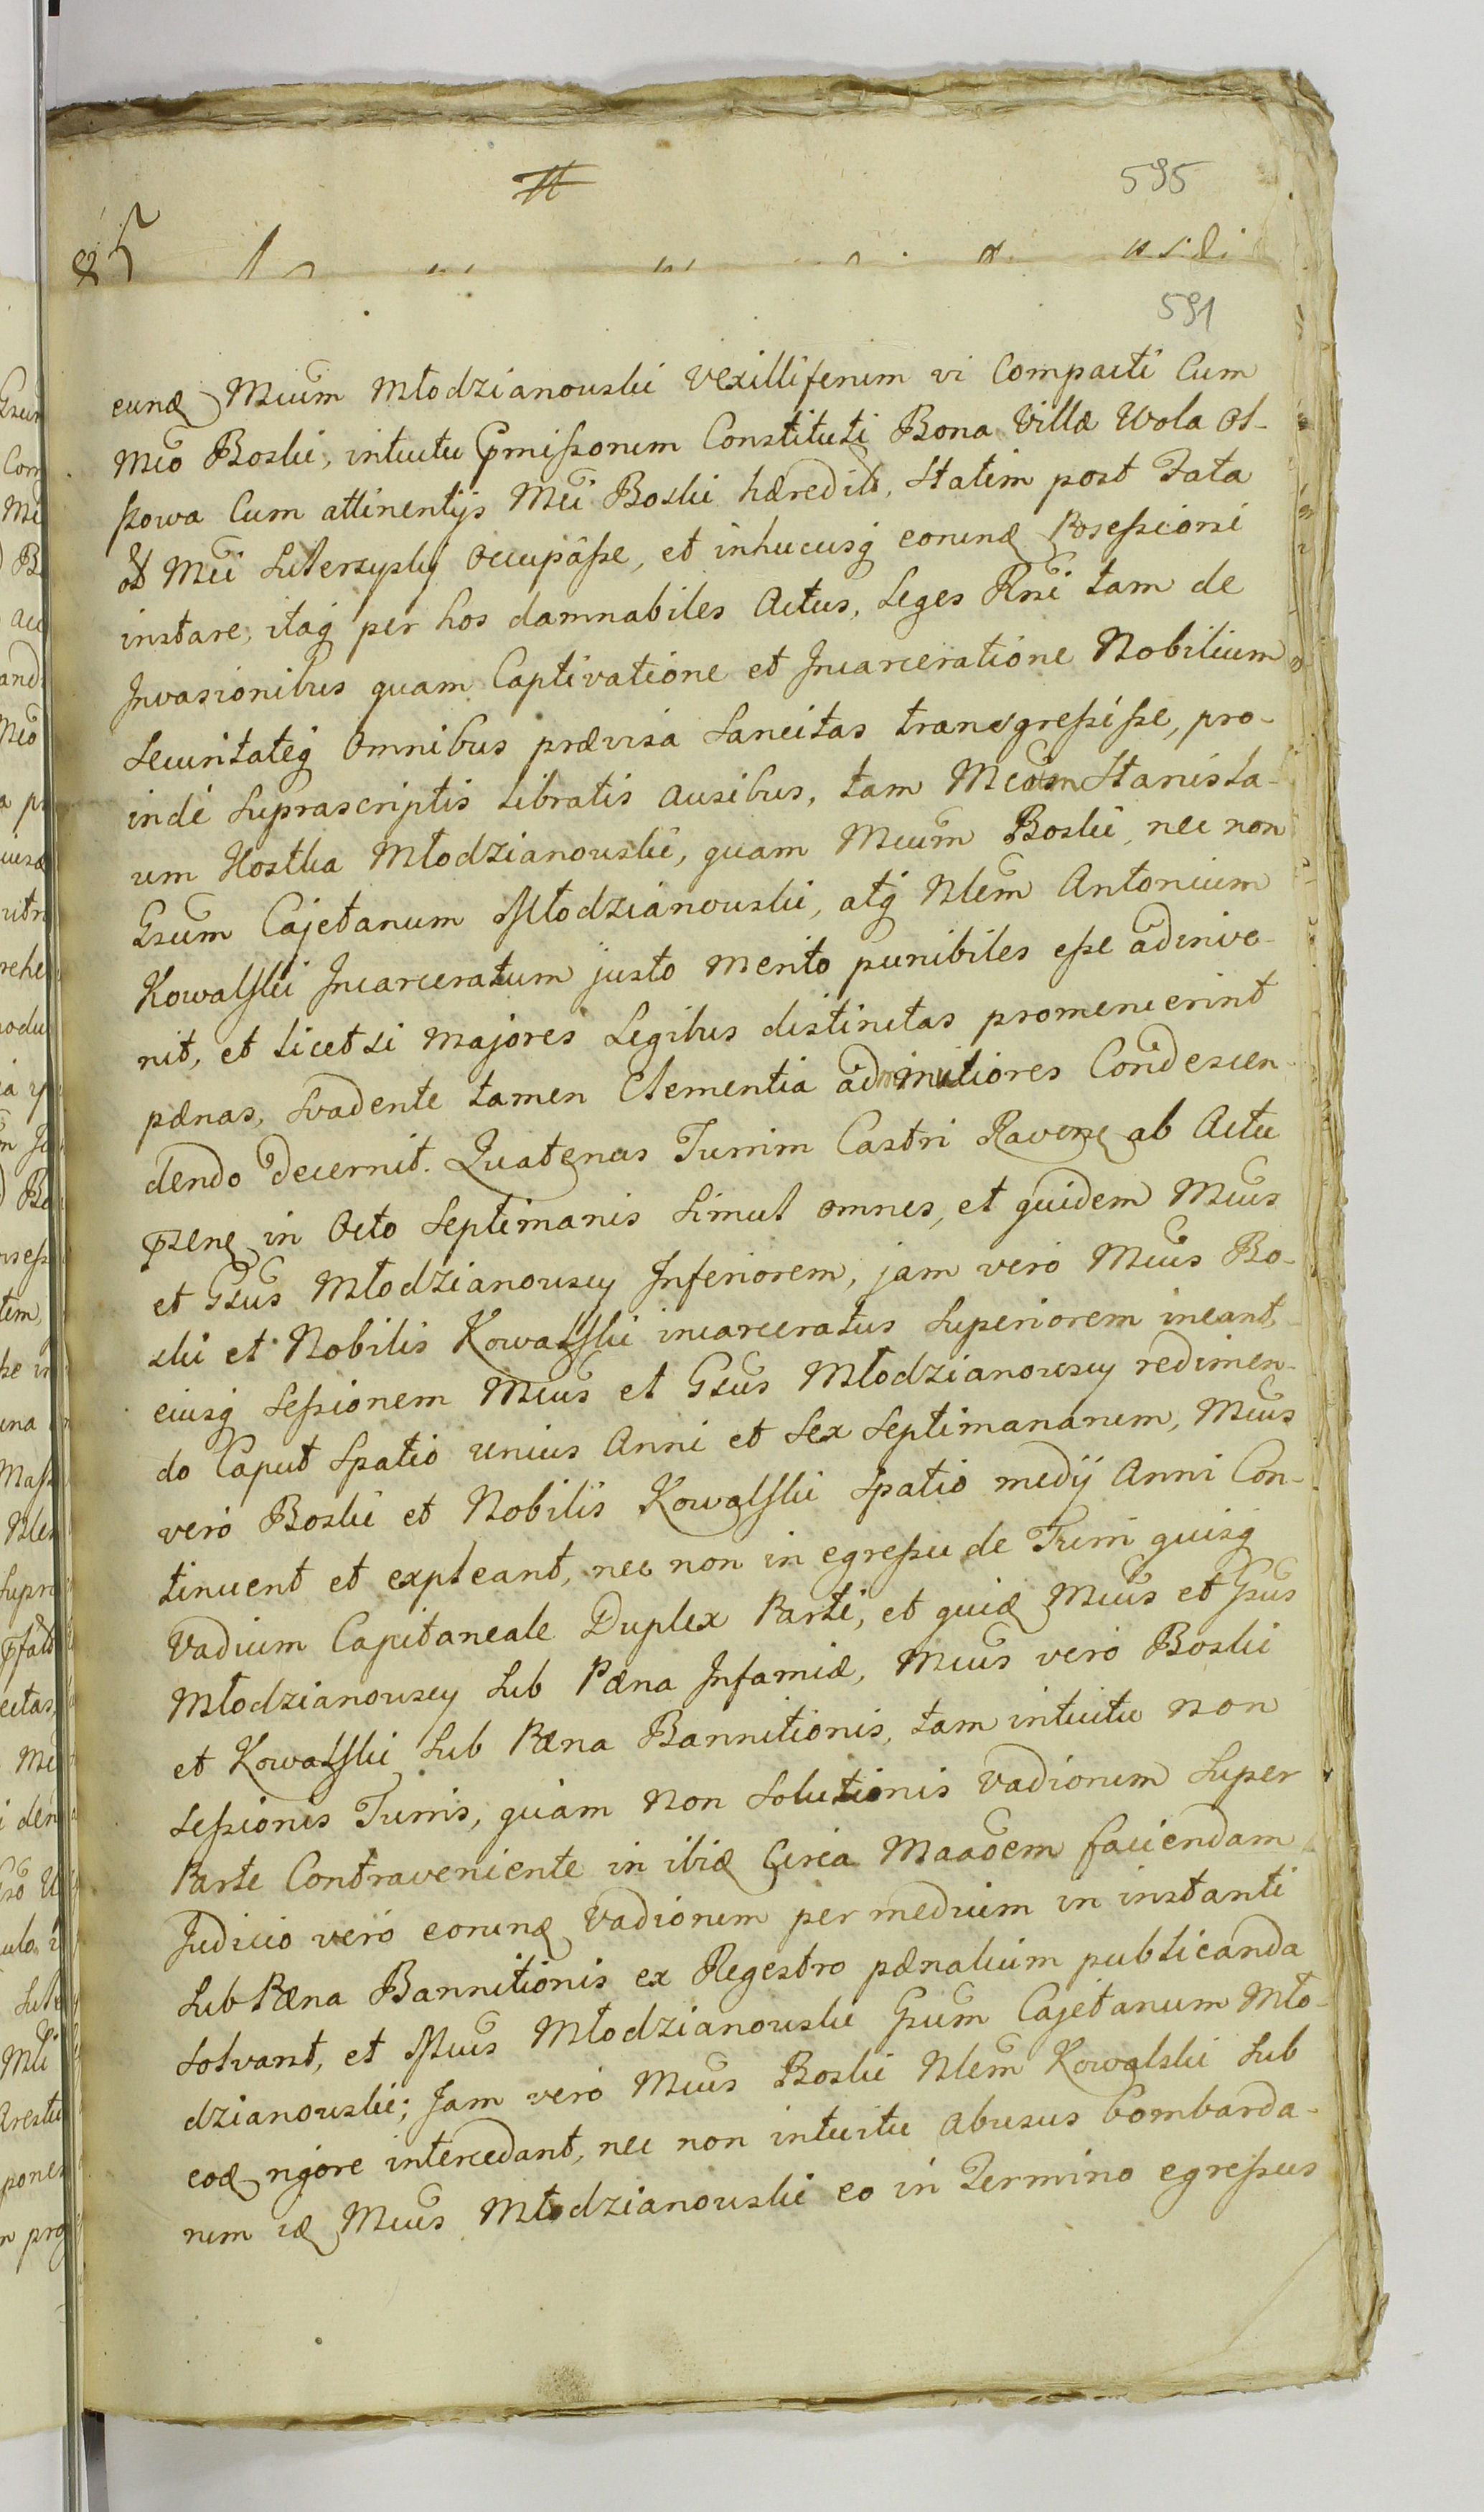 595
591
eund Mcum Młodzianowski Vexilliferum vi Compacti Cum
Mco Boski, intuitu Pmissorum Constituti Bona Villæ Wola Ol-
szowa Cum attinentijs Mci Boski hæredit, Statim post Fata
Mci occupasse, et inhucusq eorund Possessioni
instare, itaq per hos damnabiles Actus, Leges Rni tam de
Invasionibus quam Captivatione et Incarceratione Nobilium
Securitateq Omnibus prævisa Sancitas transgressisse, pro-
inde Suprascriptis libratis Ausibus, tam Mcum Stanisla-
um Hostka Młodzianowski, quam Mcum Boski, nec non
Gsum Cajetanum Młodzianowski, atq Nlem Antonium
Kowalski Incarceratum justo merito punibiles esse adinve-
nit, et licet si majores Legibus distinctas promeruerint
pænas, Svadente tamen Clementia ad mitiores Condescen-
dendo decernit. Quatenus Turrim Castri Raven ab Actu
pnti in Octo Septimanis Simul omnes, et quidem Mcus
et Gsus Młodzianowscy Inferiorem, jam vero Mcus Bo-
ski et Nobilis Kowalski incarceratus Superiorem ineant,
eiusq Sessionem Mcus et Gsus Młodzianowscy redimen-
do Caput Spatio unius Anni et Sex Septimanarum, Mcus
vero Boski et Nobilis Kowalski Spatio medij Anni Con-
tinuent et expleant, nec non in egressu de Turri quisq
Vadium Capitaneale Duplex Parti, et quid Mcus et Gsus
Młodzianowscy Sub Pæna Infamiæ, Mcus vero Boski
et Kowalski Sub Pæna Bannitionis, tam intuitu non
Sessionis Turris, quam non Solutionis Vadiorum Super
Parte Contraveniente in ibid Circa faciendam
Judicio vero eorund Vadiorum per medium in instanti
Sub Pæna Bannitionis ex Regestro pænalium publicanda
Solvant, et Mcus Młodzianowski Gsum Cajetanum Mło-
dzianowski; Jam vero Mcus Boski Nlem Kowalski Sub
eod rigore intercedant, nec non intuitu abusus bombarda-
rum id Mcus Młodzianowski eo in Termino egressus